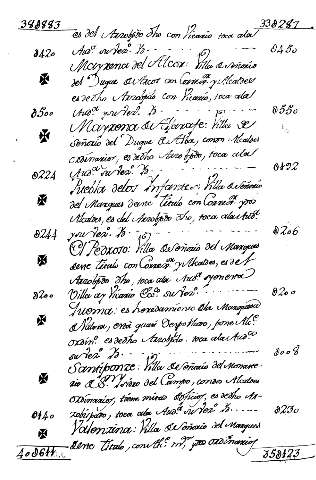 388883 338287
es del Arzobispo dho con Vicario, toca ala
0420 Aud.ª su Vez.º D. 0450
Mayrena del Alcor: Villa de Señorio
del Duque de Arcos con Correx.r y Alcaldes
es de dho Arzobispado con Vicario, toca ala
0500 Aud.ª su Vez.º D. 0550
Mayrena de Aljarafe: Villa de
Señorio del Duque de Alva, con sus Alcaldes
ordinarios, es de dho Arzobispo, toca ala
0224 Aud.ª su Vez.º D. 0122
Puebla delos Infantes: Villa de Señorio
del Marques tiene titulo con Correx.r y sus
Alcaldes, es del Arzobispo dho, toca ala Aud.ª
0244 y su Vez.º D. 0206
El Pedroso: Villa de Señorio del Marques
tiene titulo con Correx.r y Alcaldes, es de el
Arzobispo dho, toca ala Aud.ª
0200 Villa y Vicario su Vez.º 0200
es heredamiento de la Marquesa
pone Alc.s
ordin.s es de dho Arzobpo. toca ala Aud.ª
su Vez.º D. 0008
Santiponze: Villa de Señorio del Monaste
rio de S.n Isidro del Campo, con sus Alcaldes
ordinarios, tiene medios oficios, es de dho Ar
0140 zobispado, toca ala Aud.ª su Vez.º D. 0230
Valenzina: Villa de Señorio del Marques
tiene titulo, con Alc.e m.r y ordinarios
358123